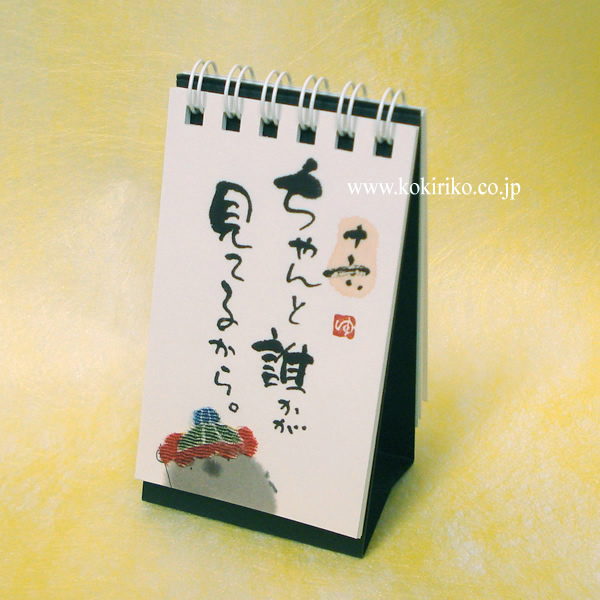 十六
ゆ
ちゃんと誰かが
見てるから。
www.kokiriko.co.jp